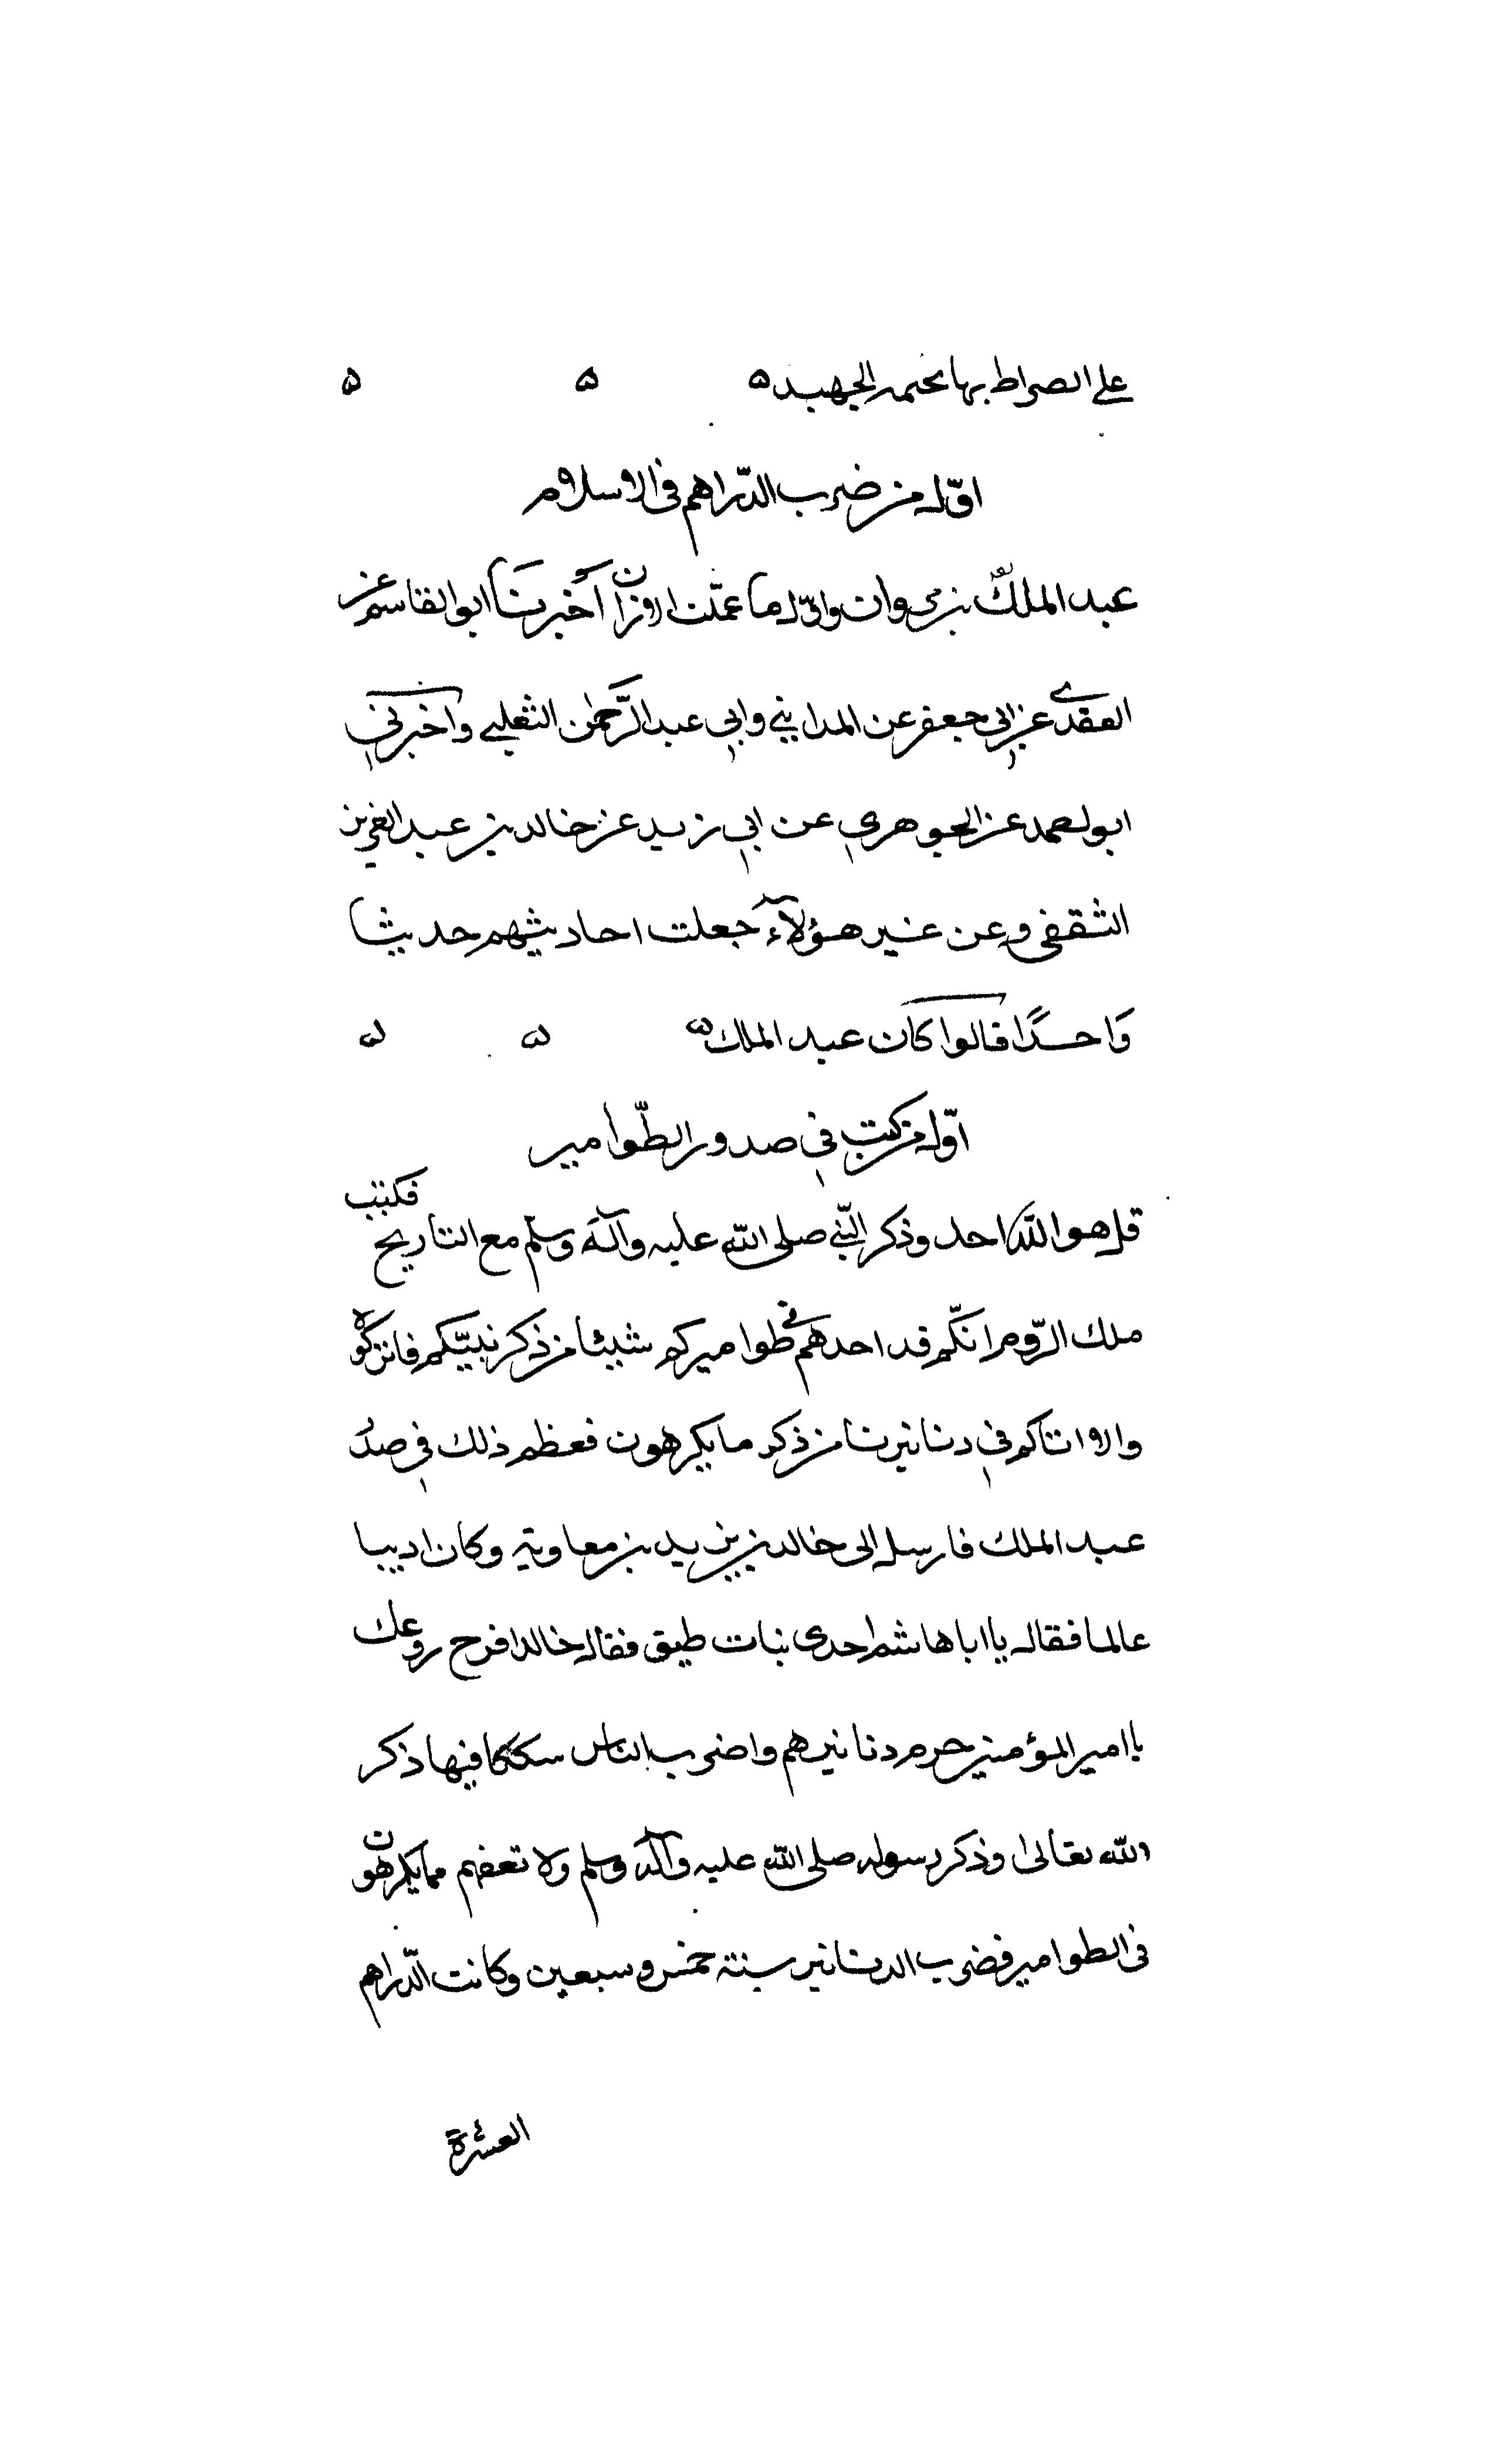 على الصراط بها بختمه الجهبد ه ه ه
اوّل من ضرب الدّراهم فى الاسلام
عبد الملك بن مروان واوّل ما عملت اوزان اخبرنا ابو القاسم عن
العقدى عن ابى جعفر عن المداينى وابى عبد الرّحمٰن الثعلبى واخبرنى
ابو احمد عن الجوهرى عن ابى زيد عن خالد بن عبد العزيز
الثقفى وعن غير هؤلآء جعلت احاديثهم حديثا
وَاحدًا قالوا كان عبد الملك ه ه ه
اوّل من كتب فى صدور الطّوامير
قل هو الله احد وذكر النّبى صلى الله عليه وآله وسلم مع التاريخ فكتب
ملك الرّوم انّكم قد احدثتم فى طواميركم شيئا من ذكر نبيّكم فاتركوه
والا اتاكم فى دنانيرنا من ذكر ما يكرهون فعظم ذلك فى صدر
عبد الملك فارسل الى خالد بن يزيد بن معاوية وكان اديبا
عالما فقال يا ابا هاشم احدى بنات طبق فقال خالد افرح روعك
يا امير المؤمنين حرم دنانيرهم واضرب للناس سككا فيها ذكر
الله تعالىٰ وذكر رسوله صلى الله عليه وآله وسلم ولا تعفهم مما يكرهون
فى الطوامير فضرب الدنانير سنة خمس وسبعين وكانت الدّراهم
العشرة